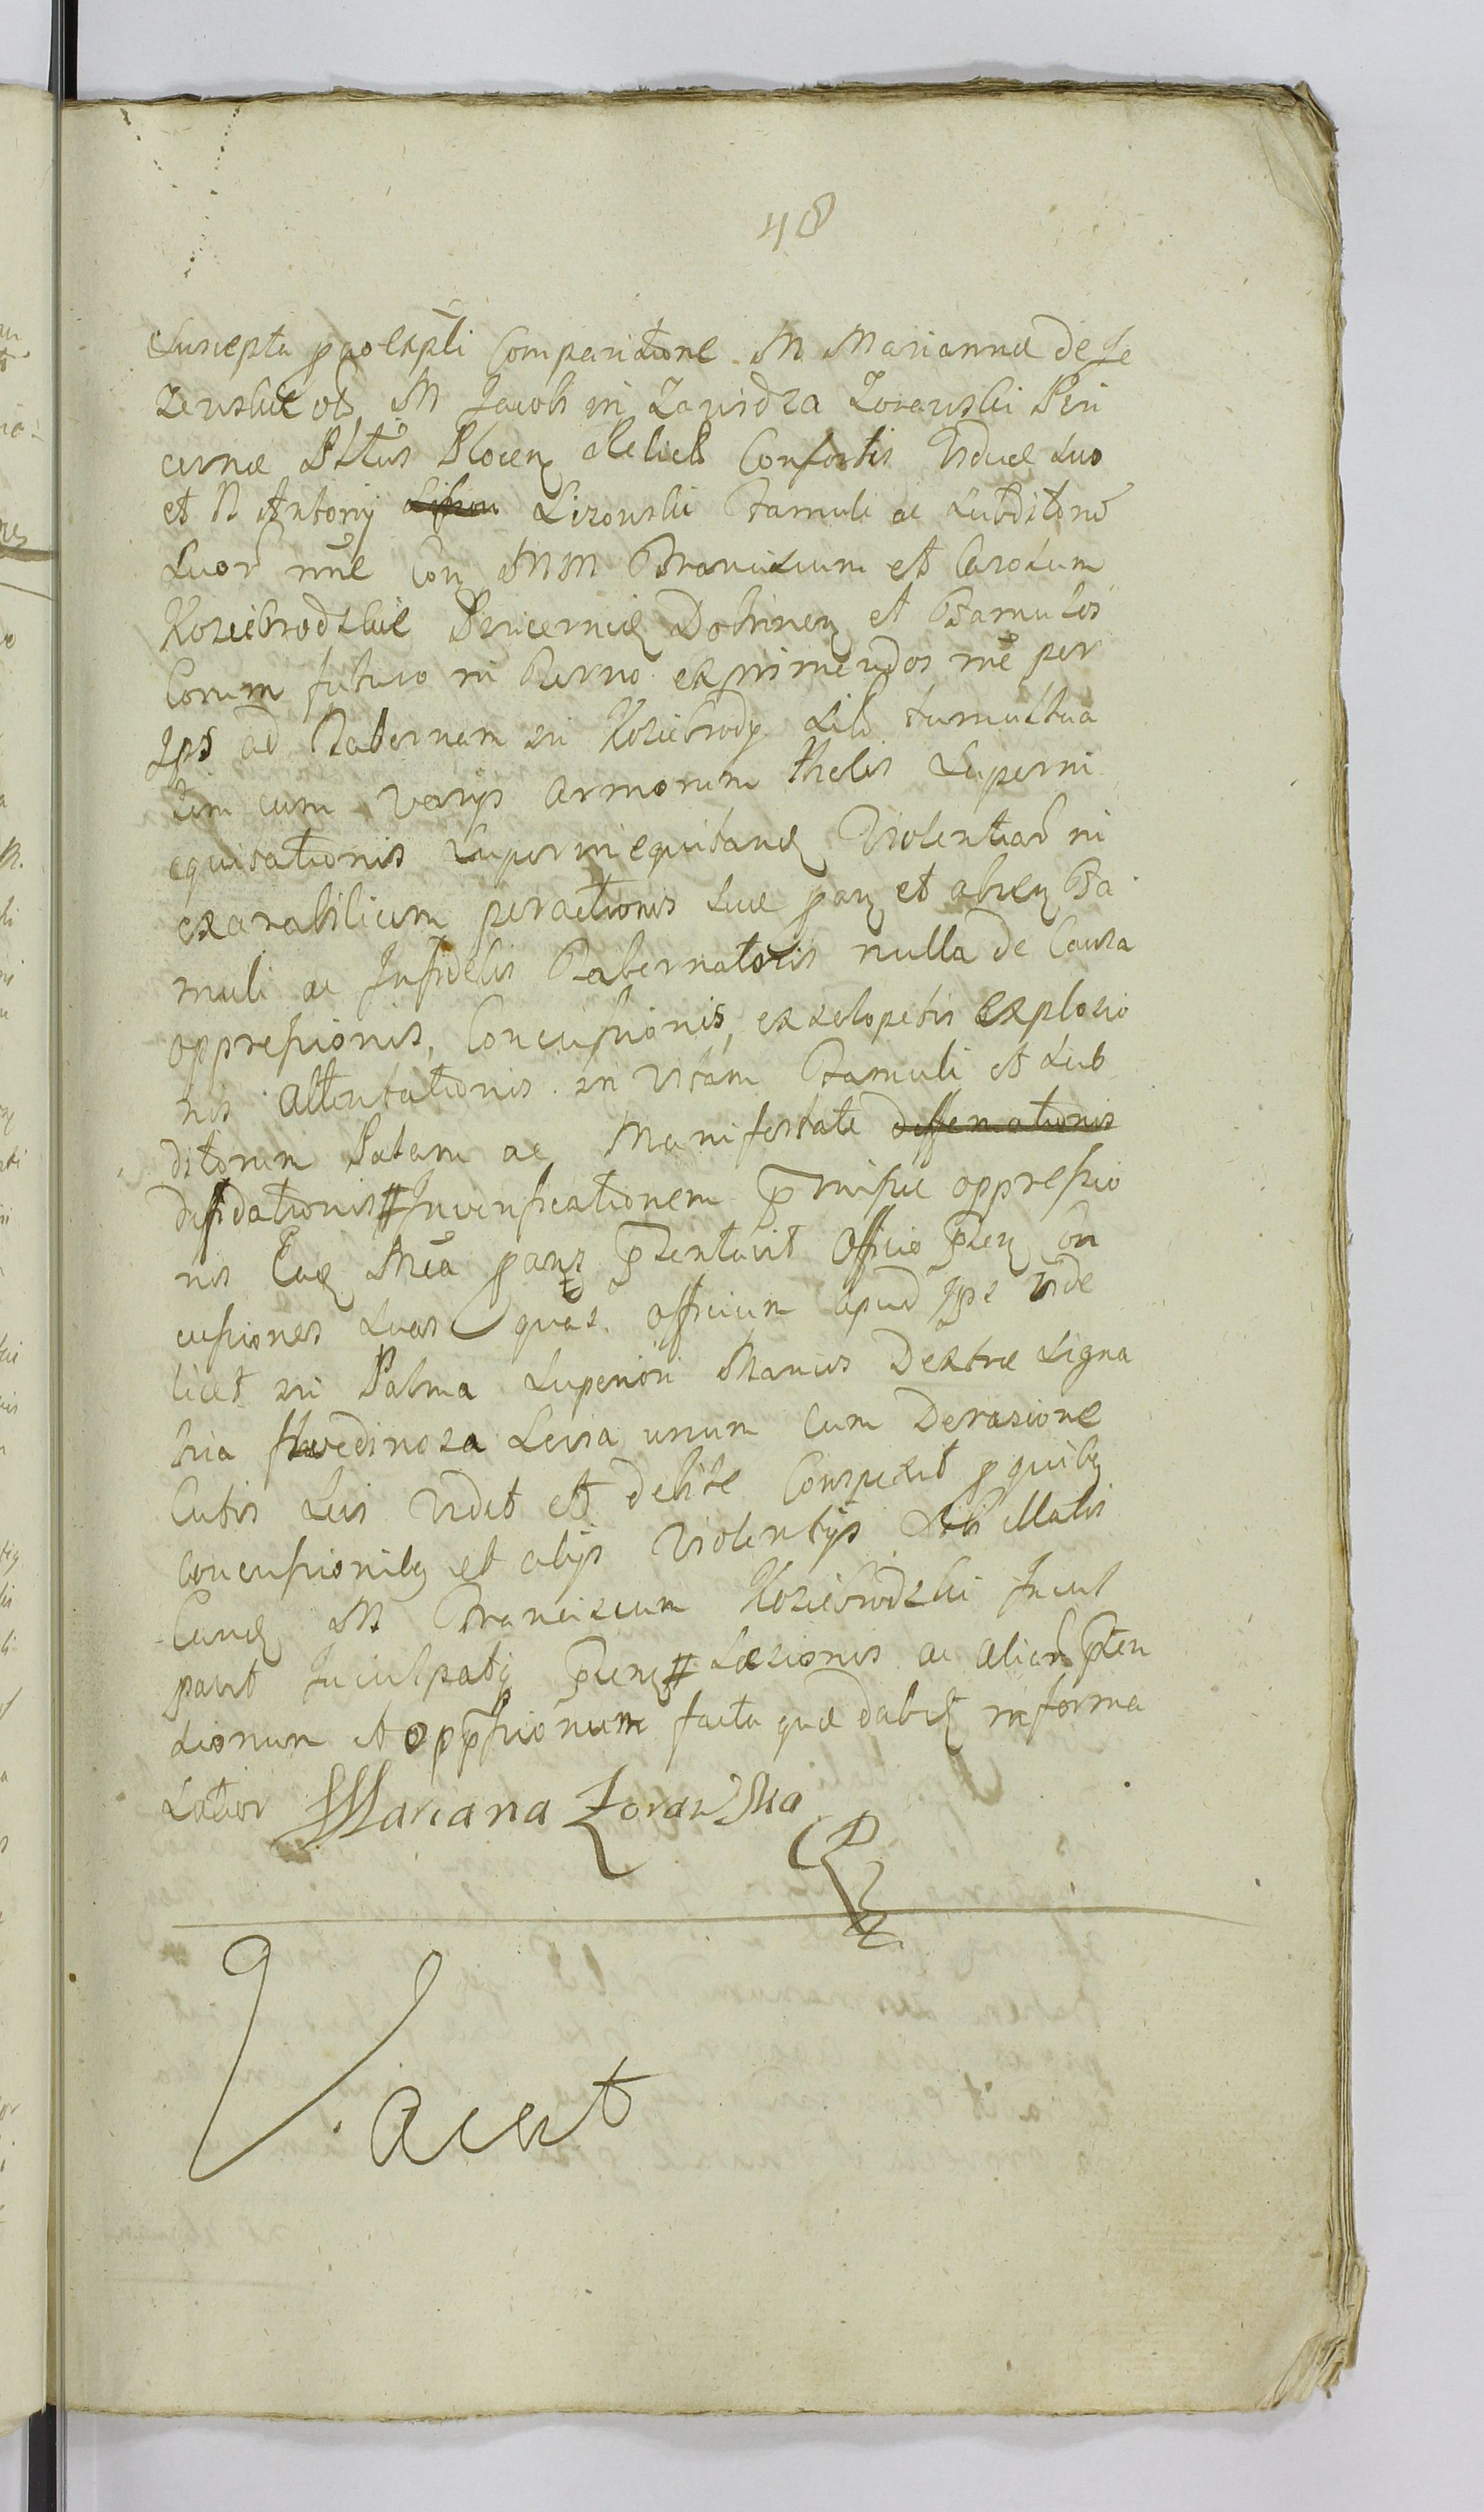 48
Suscepta personli Comparitione M Mariannæ de Je
zewskie olim M Jacobi in Zawidza Zorawski Pin
cernæ Pltus Plocen Relictæ Consortis Viduæ suo
et N Antonÿ Lizowski Famuli ac subditorū
suor nne Con MM Franciscum et Carolum
Koziebrodzkie Pincernid Dobrinen et Famulos
Eorum futuro in Termo exprimendos rne per
Ips ad Tabernam in Koziebrody sibi tumultua
tim cum Varÿs armorum thelis superin
equitationis superinequitand Violentiar in
exarabilium peractionis suæ part et absen Fa
muli ac Infidelis Tabernatoris nulla de Causa
oppressionis, Concussionis, ex sclopetis explosio
nis attentationis in Vitam Famuli et sub
ditorum Palam ac Manifestate deffemationis
diffidationis # Inculpationem præmissæ oppressio
nis Ead Mca part præsentavit Officio præsen Con
cussiones suas quas officium apud Ips Vide
licet in Palma superiori Manus Dextræ signa
tria flavedinosa Levia unum cum Derasione
Cutis suis Vidit et debite Conspexit pro quibq
Concussionibq et alÿs Violentÿs sibi illatis
Eund M Franciscum Koziebrodzki Incul
pavit Inculpatq præsen # Læsionis ac aliar præten
sionum et oppressionum facta quæ dabit in forma
Latior Mariana Zorawska
Vacat